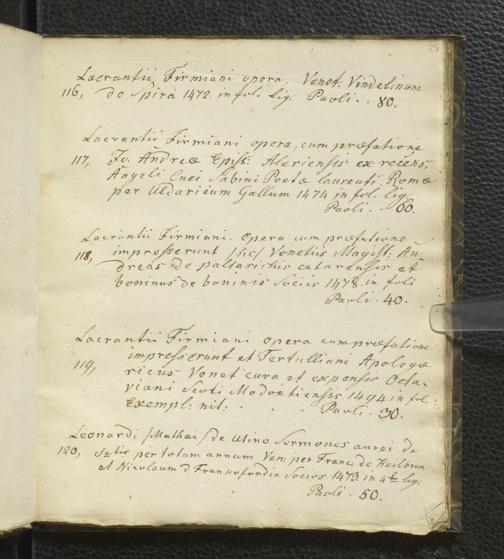 Lacrantii Firmiani opera. Venet. Vindelinum
116, de Spira 1472. in fol. lig. Paoli . . 80.
Lacrantii Firmiani opera, cum præfatione
117, Jo. Andreæ Epis: Aleriensis ex recens.
Angeli Cnei Sabini Poetæ laureati, Romæ
per Uldaricum Gallum 1474 in fol. lig
Paoli . 60.
Lacrantii Firmiani. Opera cum præfatione
118, impresserunt /sic/ Venetiis Magist: An-
dreas de paltasichis catarensis et
boninus de boninis Socii 1478. in foli
Paoli . 40.
Lacrantii Firmiani opera cum præfatione
impresserunt et Tertulliani Apologe
119, ticus Venet cura et expensis Octa-
viani Scoti Modoetiensis 1494 in fol:
Exempl: nit: . . Paoli . 30.
Leonardi /Mathei/ de Utino Sermones aurei de
120, Sctis per totum annum Ven: per Franc: de Heilbrun
et Nicolaum d Frankofordia Socios 1473. in 4to lig.
Paoli . 50.